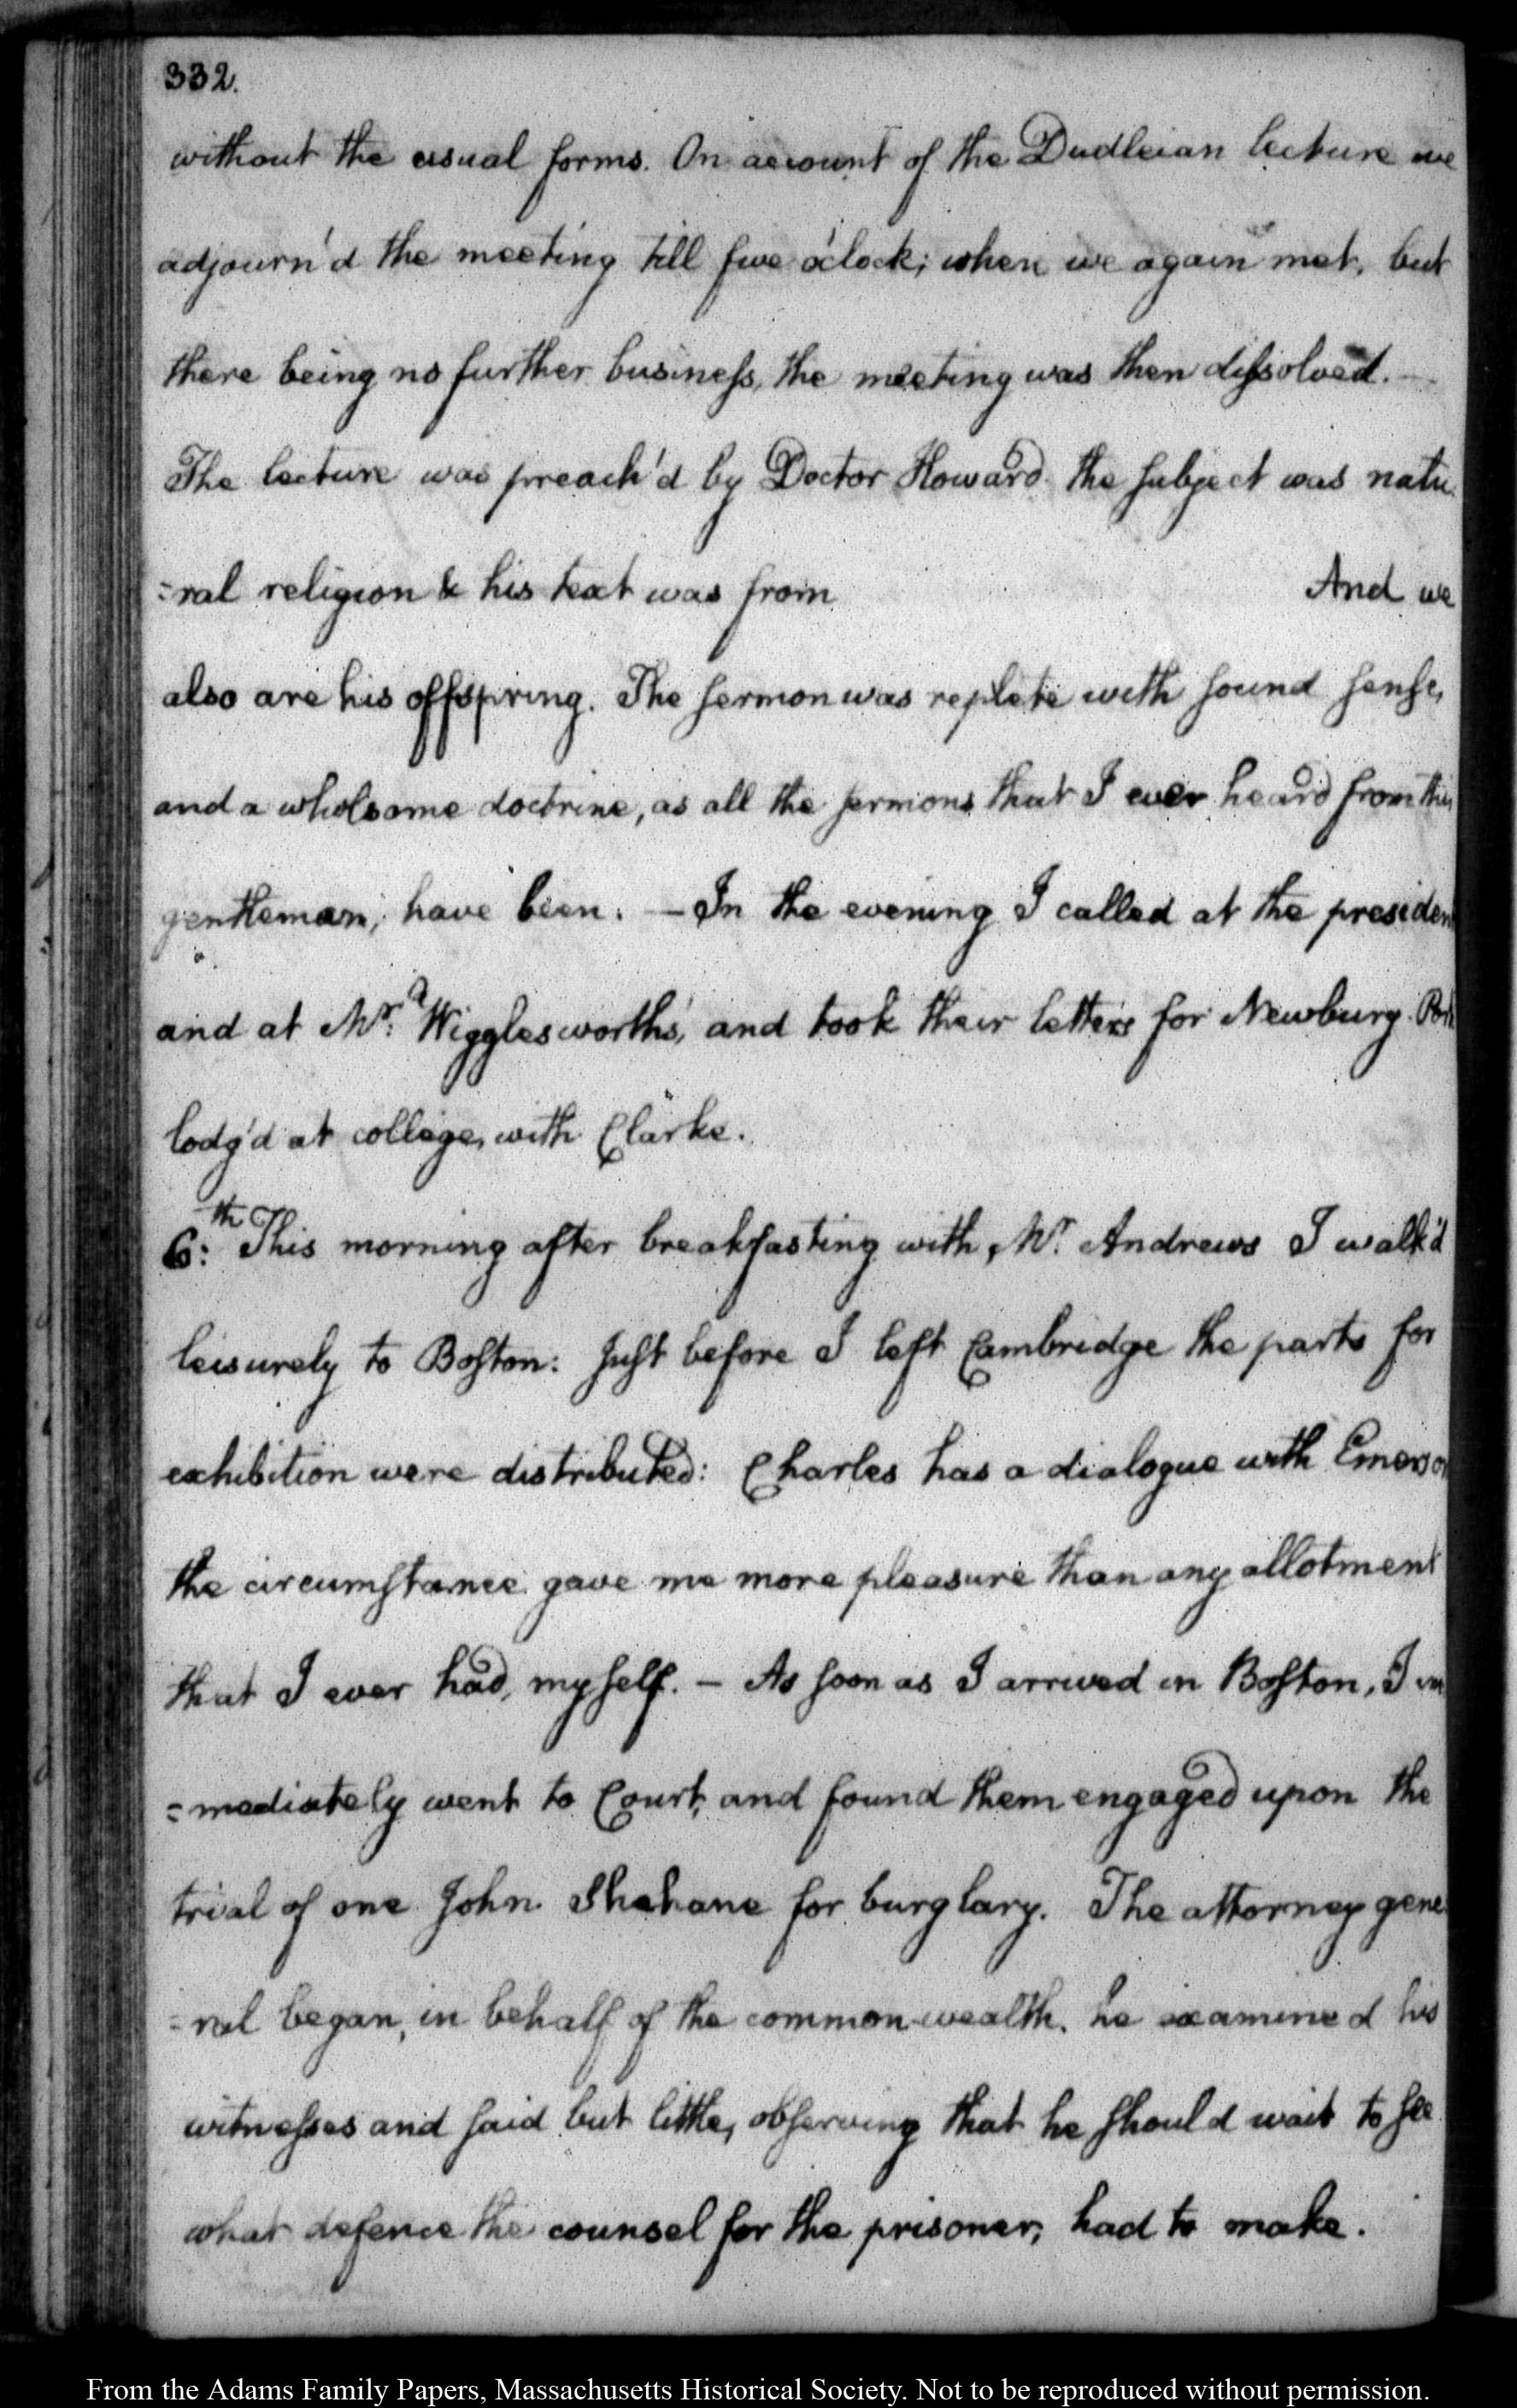 332.
without the usual forms. On account of the Dudleian lecture we
adjourn'd the meeting till five o'clock; when we again met, but
there being no further business, the meeting was then dissolved. —
The lecture was preach'd by Doctor Howard. the subject was natu
=ral religion & his text was from And we
also are his offspring. The sermon was replete with sound sense,
and a wholsome doctrine, as all the sermons that I ever heard from this
gentleman, have been. — In the evening I called at the presiden
and at Mr. Wigglesworth's, and took their letters for Newbury-Port
lodg'd at college, with Clarke.
6:th This morning after breakfasting with Mr. Andrews I walk'd
leisurely to Boston: Just before I left Cambridge the parts for
exhibition were distributed: Charles has a dialogue with Emerson
the circumstance gave me more pleasure than any allotment
that I ever had, myself. — As soon as I arrived in Boston, I im
=mediately went to Court, and found them engaged upon the
trial of one John Shehane for burglary. The attorney gene
=ral began, in behalf of the common-wealth. he examined his
witnesses and said but little, observing that he should wait to see
what defence the counsel for the prisoner, had to make.
From the Adams Family Papers, Massachusetts Historical Society. Not to be reproduced without permission.